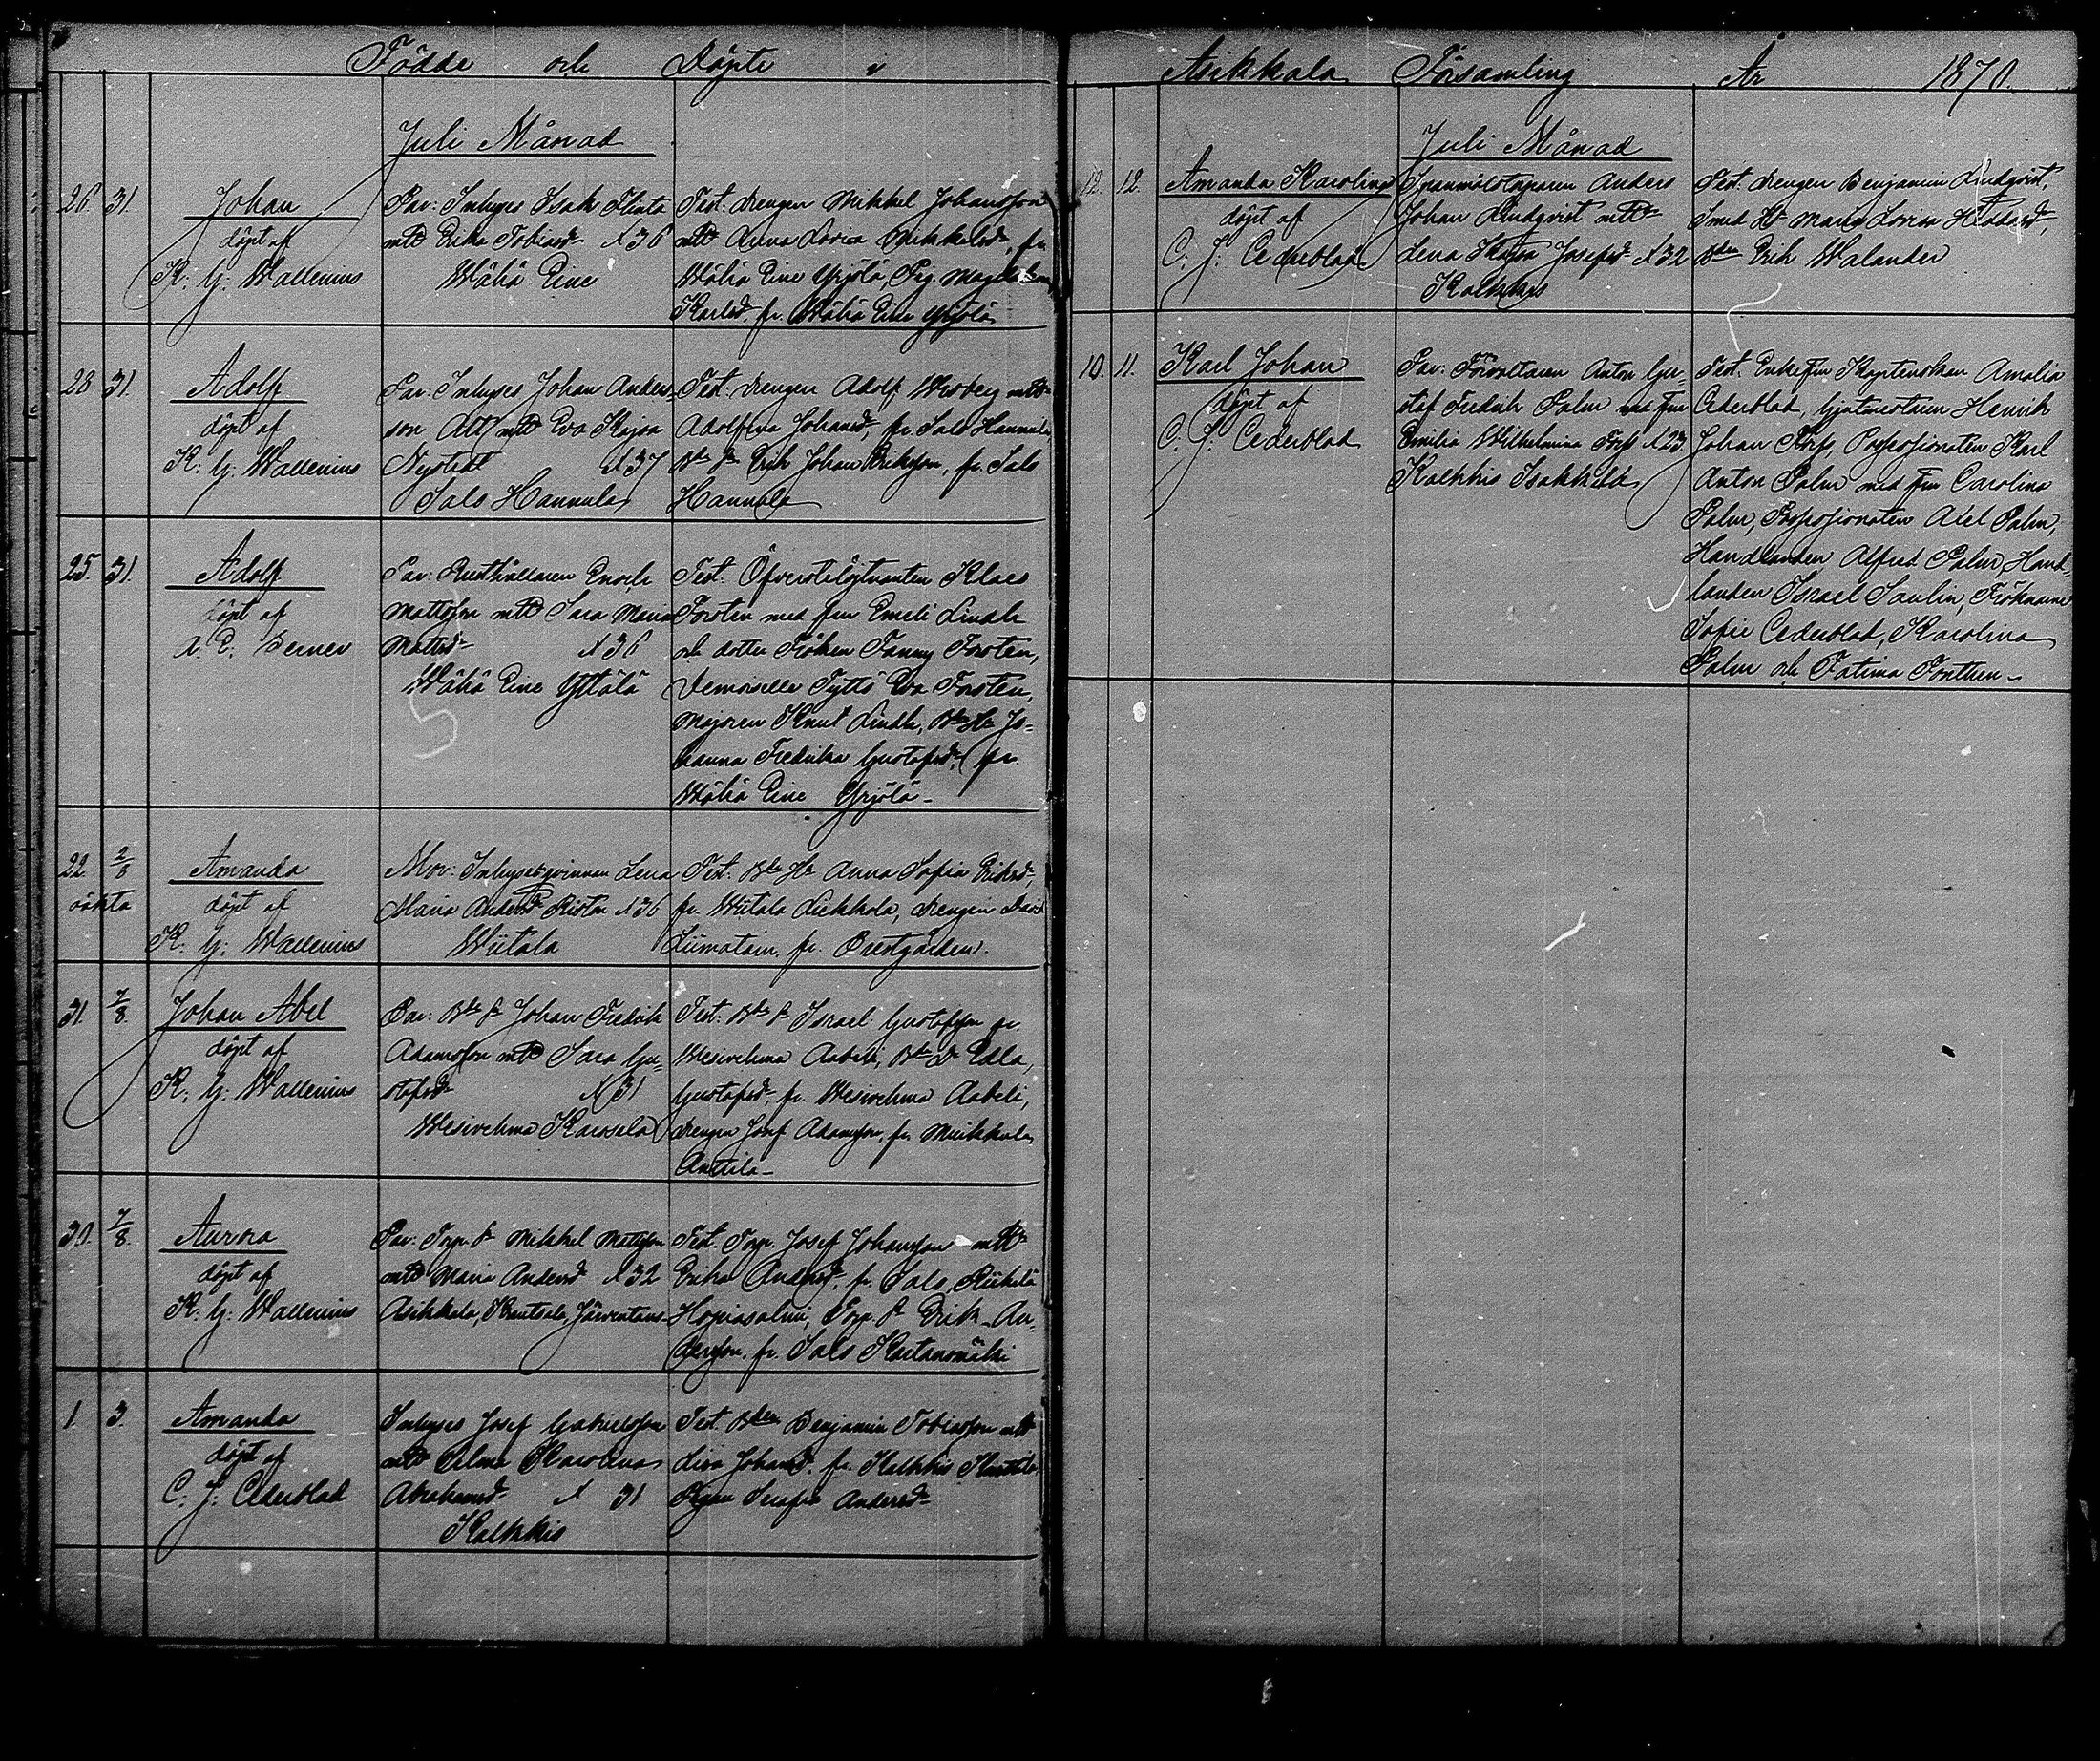 Födde och Döpte i
Juli Månad
26. 31. Johan
döpt af
K. G. Wallenius
Par: Inhyses Isak Flinta
mtte Erika Tobiasd. Å 36
Wähä Eine
Test. drengen Mikkel Johansson
mtte Anna Lovisa Mikkelsd., fr.
Wähä Eine Yrjölä, Pig. Magdalena
Karlsd. fr. Wähä Eine Yrjölä
28 31. Adolf
döpt af
K. G. Wallenius
Par: Inhyses Johan Anders-
son Att mtte Eva Kajsa
Nystedt Å 37
Salo Hannula
Test. drengen Adolf Wiberg mtte
Adolfina Johansd., fr. Salo Hannula
Bde S. Erik Johan Eriksson, fr. Salo
Hannula
25. 31. Adolf
döpt af
A. E. Berner
Par: Rusthållaren Enoch
Mattsson mtte Sara Maria
Mattsd. Å 36
Wähä Eine Yttälä
Test. Öfverstelöjtnanten Klaes
Forsten med fru Emeli Lindh
och dotter Fröken Fanny Forsten,
Demoiselle Tyttö Eva Forsten,
Majoren Knut Lindh, Bde Hu Jo-
hanna Fredrika Gustafsd., fr.
Wähä Eine Yrjölä
22. 2/8 Amanda
oäkta
döpt af
K. G. Wallenius
Mor: Inhysesqvinnan Lena
Maria Andersd. Ristola Å 36
Wiitala
Test. Bde Hu Anna Sofia Eriksd.,
fr. Wiitala Liekkola, drengen David
Liimatain, fr. Prestgården.
31. 7/8. Johan Abel
döpt af
K. G. Wallenius
Par: Bde S. Johan Fredrik
Adamsson mtte Sara Gu-
stafsd. Å 31
Wesivehma Karosala
Test. Bde S. Israel Gustafsson fr.
Wesivehma Aabeli, Bde D. Edla
Gustafsd., fr. Wesivehma Aabeli,
drengen Josef Adamsson, fr. Muikkula
Anttila
30. 7/8. Aurora
döpt af
K. G. Wallenius
Par: Torp. S. Mikkel Mattsson
mtte Maria Andersd. Å 32
Asikkala, Kreutsala, Järventaus
Test. Torp. Josef Johansson mtte
Erika Andersd., fr. Salo, Riihelä
Hopiasalmi, Torp. S. Erik An-
dersson, fr. Salo Kaitanomäki
1. 3. Amanda
döpt af
C. J. Cederblad
Inhyses Josef Gabrielsson
mtte Alma Karolina
Abrahamsd. Å 31
Kalkkis
Test. Bden Benjamin Tobiasson mtte
Lisa Johansd. fr. Kalkkis
Pigan Serafia Andersd.
Asikkala Församling År 1870.
Juli Månad
12. 12. Amanda Karolina
döpt af
C. J. Cederblad
Spanmålstagaren Anders
Johan Lindqvist mtte
Lena Kajsa Josefsd. Å 32
Kalkkis
Test. drengen Benjamin Lindqvist,
Smed H. Maria Lovisa
Bden Erik Walander
10. 11. Karl Johan
döpt af
C. J. Cederblad
Par: Förvaltaren Anton Gu-
staf Fredrik Palm med Fru
Emilia Wilhelmina Forss Å 23.
Kalkkis Isakkila
Test. Enkefru Kaptenskan Amalia
Cederblad, Gjutmestaren Henrik
Johan Forss, Possessionaten Karl
Anton Palm med Fru Carolina
Palm, Possessionaten Axel Palm,
Handlanden Alfred Palm, Hand-
landen Israel Saulin, Fröknarne
Sofie Cederblad, Karolina
Palm och Fatima Forthen